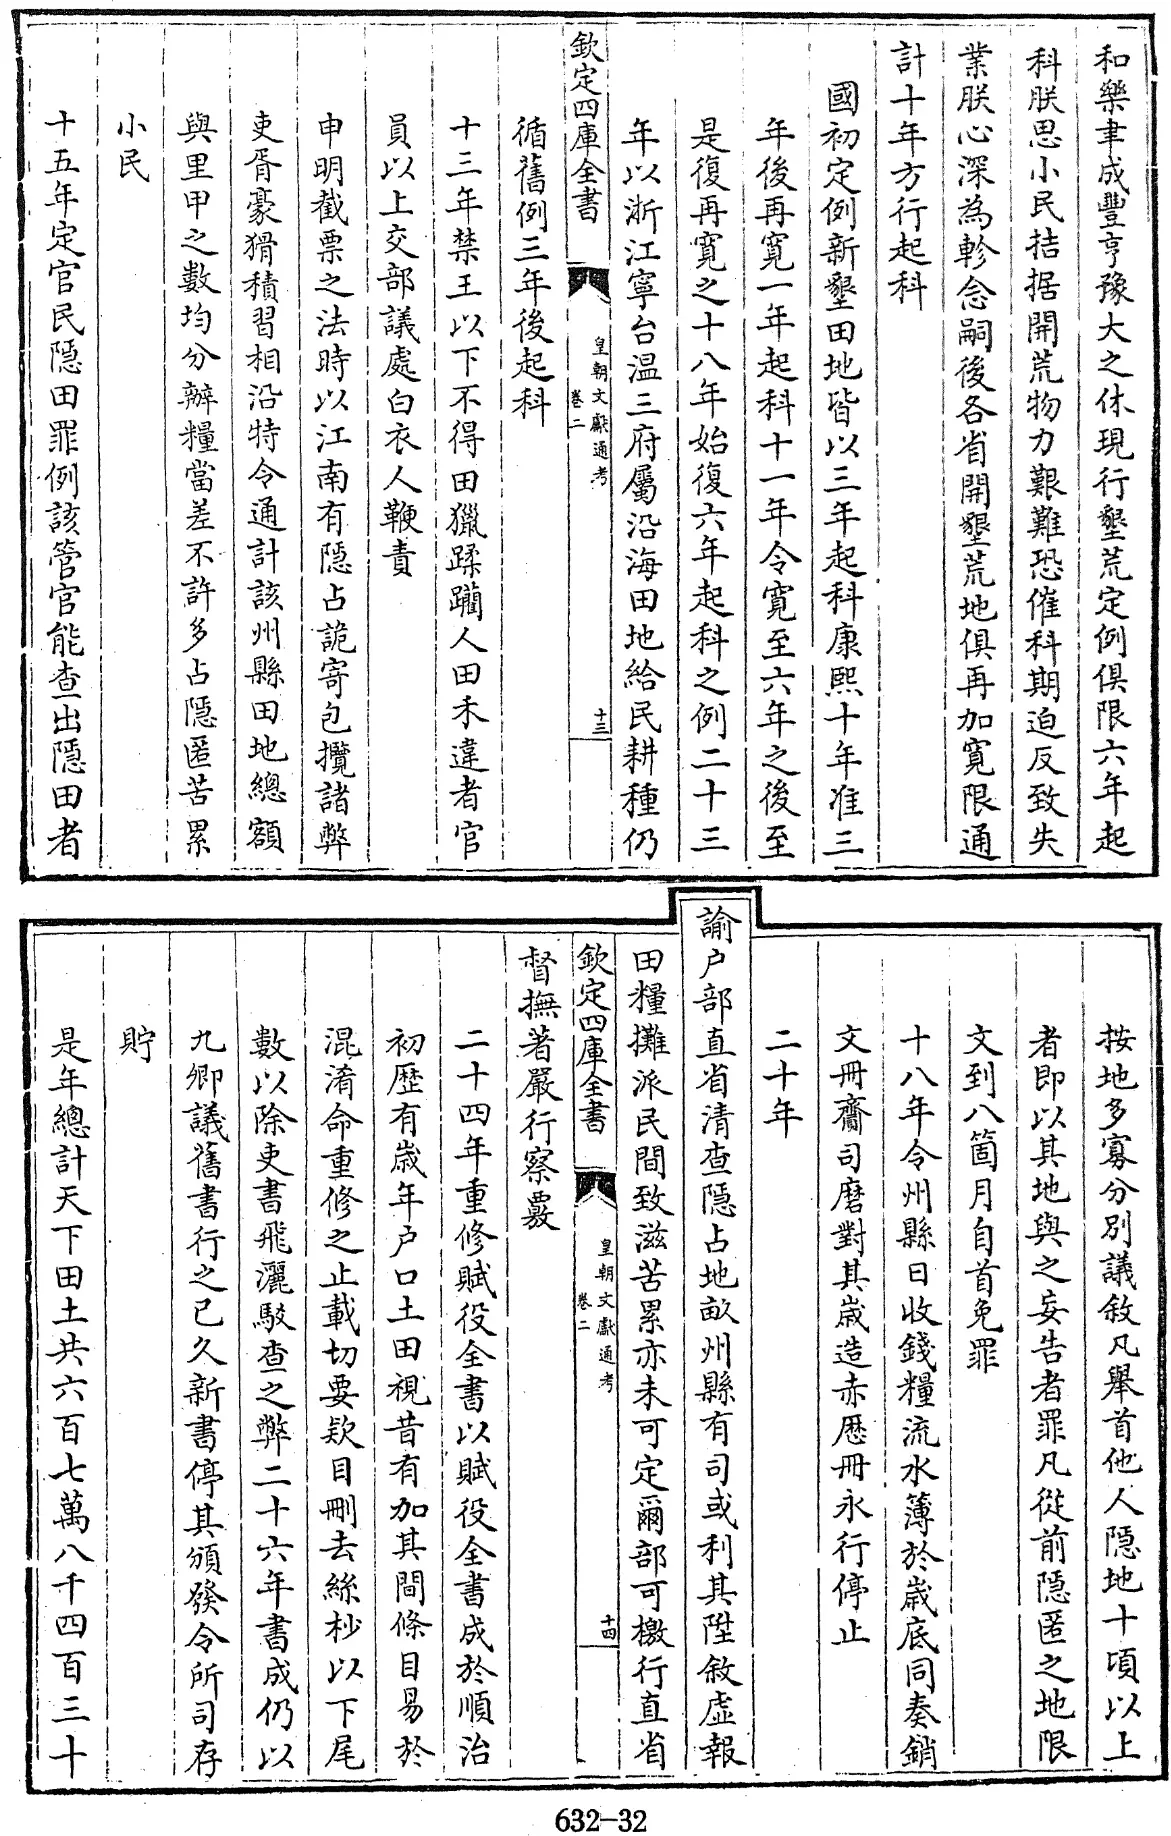 和樂聿成豐亨豫大之休現行墾荒定例俱限六年起
科朕思小民拮据開荒物力艱難恐催科期迫反致失
業朕心深為軫念嗣後各省開墾荒地俱再加寬限通
計十年方行起科
國初定例新墾田地皆以三年起科康熙十年准三
年後再寬一年起科十一年令寬至六年之後至
是復再寬之十八年始復六年起科之例二十三
年以浙江寧台温三府屬沿海田地給民耕種仍
欽定四庫全書
皇朝文獻通考
卷二
十三
循舊例三年後起科
十三年禁王以下不得田獵蹂躪人田禾違者官
員以上交部議處白衣人鞭責
申明截票之法時以江南有隱占詭寄包攬諸弊
吏胥豪猾積習相沿特令通計該州縣田地總額
與里甲之數均分辦糧當差不許多占隱匿苦累
小民
十五年定官民隱田罪例該管官能查出隱田者
按地多寡分別議敘凡舉首他人隱地十頃以上
者即以其地與之妄告者罪凡從前隱匿之地限
文到八箇月自首免罪
十八年令州縣日收錢糧流水簿於歲底同奏銷
文冊齎司磨對其歲造赤厯冊永行停止
二十年
諭户部直省清查隱占地畝州縣有司或利其陞敘虛報
田糧攤派民間致滋苦累亦未可定爾部可檄行直省
欽定四庫全書
皇朝文獻通考
卷二
十四
督撫著嚴行察覈
二十四年重修賦役全書以賦役全書成於順治
初歷有歲年户口土田視昔有加其間條目易於
混淆命重修之止載切要款目刪去絲杪以下尾
數以除吏書飛灑駮查之弊二十六年書成仍以
九卿議舊書行之已久新書停其頒發令所司存
貯
是年總計天下田土共六百七萬八千四百三十
632-32